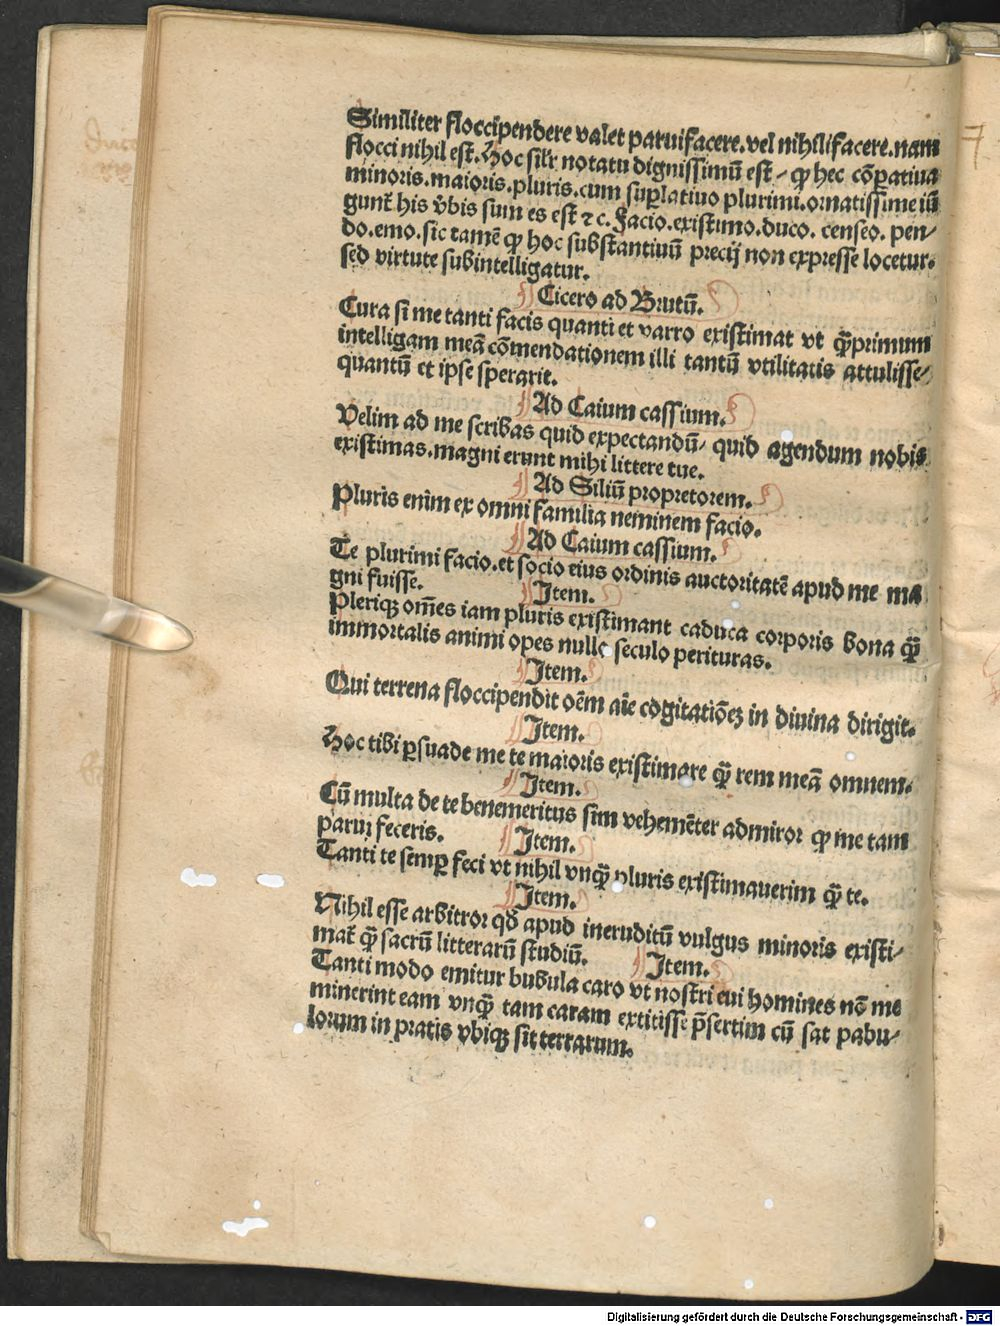 Similiter floccipendere valet paruifacere.vel nihilifacere.nam
flocci nihil est.Hoc silr notatu dignissimū est / ꝙ hec cōꝑatiua
minoris.maioris.pluris.cum suꝑlatiuo plurimi.ornatissime iū
gunt᷑ his v̄bis sum es est ⁊ c. Facio.existimo.duco. censeo. pen⸗
do.emo.sic tamē ꝙ hoc substantiuū precij non expresse locetur.
sed virtute subintelligatur.
Cicero ad Brutū.
Cura si me tanti facis quanti et varro existimat vt ꝙ̄primum
intelligam meā cōmendationem illi tantū vtilitatis attulisse⸗
quantū et ipse sperarit.
Ad Caium cassium.
Velim ad me scribas quid expectandū/ quid agendum nobis
existimas.magni erunt mihi littere tue.
Ad Siliū propretorem.
Pluris enim ex omni familia neminem facio.
Ad Caium cassium.
Te plurimi facio.et socio eius ordinis auctoritatē apud me ma
gni fuisse.
Item.
Pleriqꝫ om̄es iam pluris existimant caduca corporis bona ꝙ̄
immortalis animi opes nullo seculo perituras.
Item.
Qui terrena floccipendit oēm aīe cogitatiōeꝫ in diuina dirigit.
Item.
Hoc tibi ꝑsuade me te maioris existimare ꝙ̄ rem meā omnem.
Item.
Cū multa de te benemeritus sim vehemēter admiror ꝙ me tam
parui feceris.
Item.
Tanti te semꝑ feci vt nihil vnꝙ̄ pluris existimauerim ꝙ̄ te.
Item.
Nihil esse arbitror qd̄ apud ineruditū vulgus minoris existi⸗
mat᷑ ꝙ̄ sacrū litterarū studiū.
Item.
Tanti modo emitur bubula caro vt nostri eui homines nō me
minerint eam vnꝙ̄ tam caram extitisse p̄sertim cū sat pabu⸗
lorum in pratis vbiqꝫ sit terrarum.
Digitalisierung gefördert durch die Deutsche Forschungsgemeinschaft - DFG